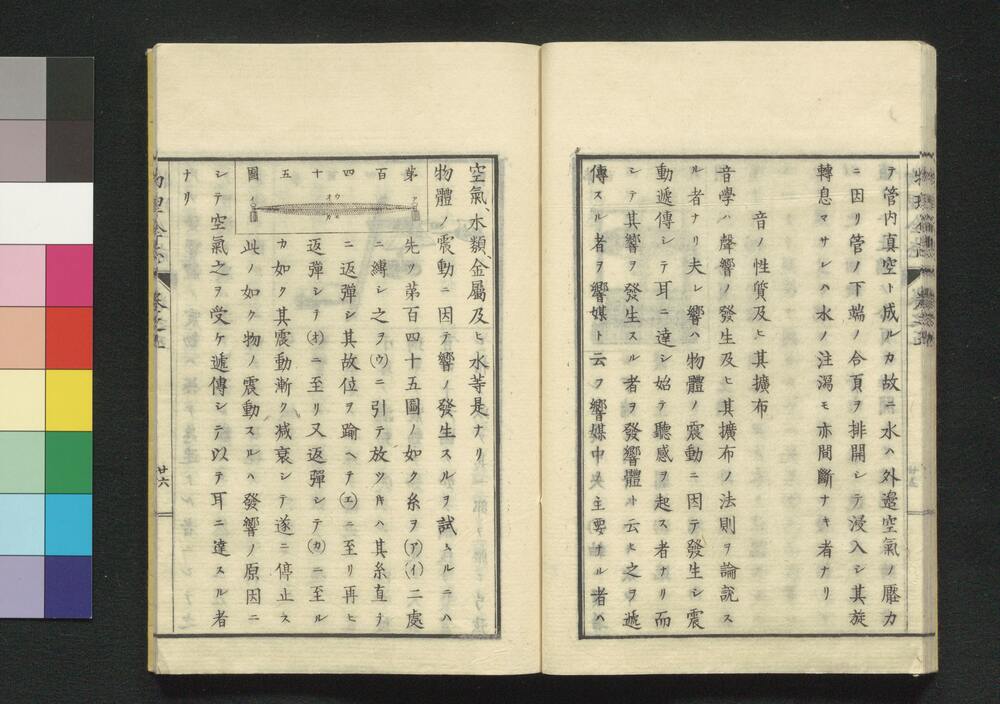 テ管内真空ト成ルカ故ニ水ハ外邉空氣ノ壓力
ニ因リ管ノ下端ノ合頁ヲ排開シテ浸入シ其旋
轉息マサレハ水ノ注瀉モ亦間斷ナキ者ナリ
音ノ性質及ヒ其擴布
音學ハ聲響ノ發生及ヒ其擴布ノ法則ヲ論説ス
ル者ナリ夫レ響ハ物體ノ震動ニ因テ發生シ震
動遞傳シテ耳ニ達シ始テ聽感ヲ起ス者ナリ而
シテ其響ヲ發生スル者ヲ發響體ト云ヒ之ヲ遞
傳スル者ヲ響媒ト云フ響媒中央主要ナル者ハ
空氣木類金屬及ヒ水等是ナリ
物體ノ震動ニ因テ響ノ發生スルヲ試ムルニハ
第百四十五圖
ア
ウ
エ
オ
カ
イ
先ツ第百四十五圖ノ如ク糸ヲ(ア)(イ)二處
ニ縛シ之ヲ(ウ)ニ引テ放ツ片ハ其糸直チ
ニ返彈シ其故位ヲ踰ヘテ(エ)ニ至リ再ヒ
返彈シテ(オ)ニ至リ又返彈シテ(カ)ニ至ル
カ如ク其震動漸ク减衰シテ遂ニ停止ス
此ノ如ク物ノ震動スルハ發響ノ原因ニ
シテ空氣之ヲ受ケ遞傳シテ以テ耳ニ達スル者
ナリ
廿六